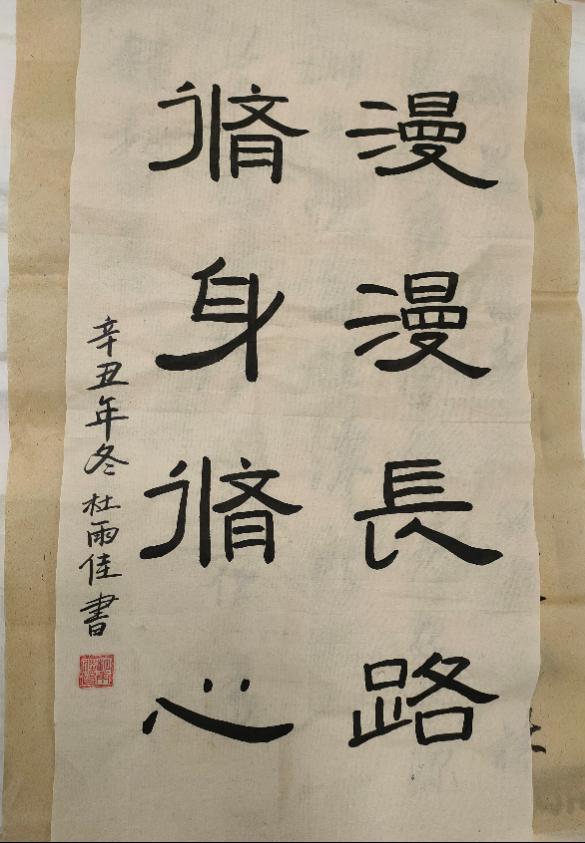 漫漫長路
脩身脩心
辛丑年冬杜雨佳書